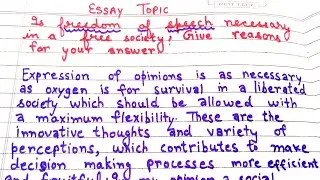 ESSAY TOPIC
Is freedom of speech necessary
in a free society? Give reasons
for your answer.
Expression of opinions is as necessary
as oxygen is for survival in a liberated
society which should be allowed with
a maximum flexibility. These are the
innovative thoughts and variety of
perceptions, which contributes to make
decision making processes more efficient
and fruitful. In my opinion a social